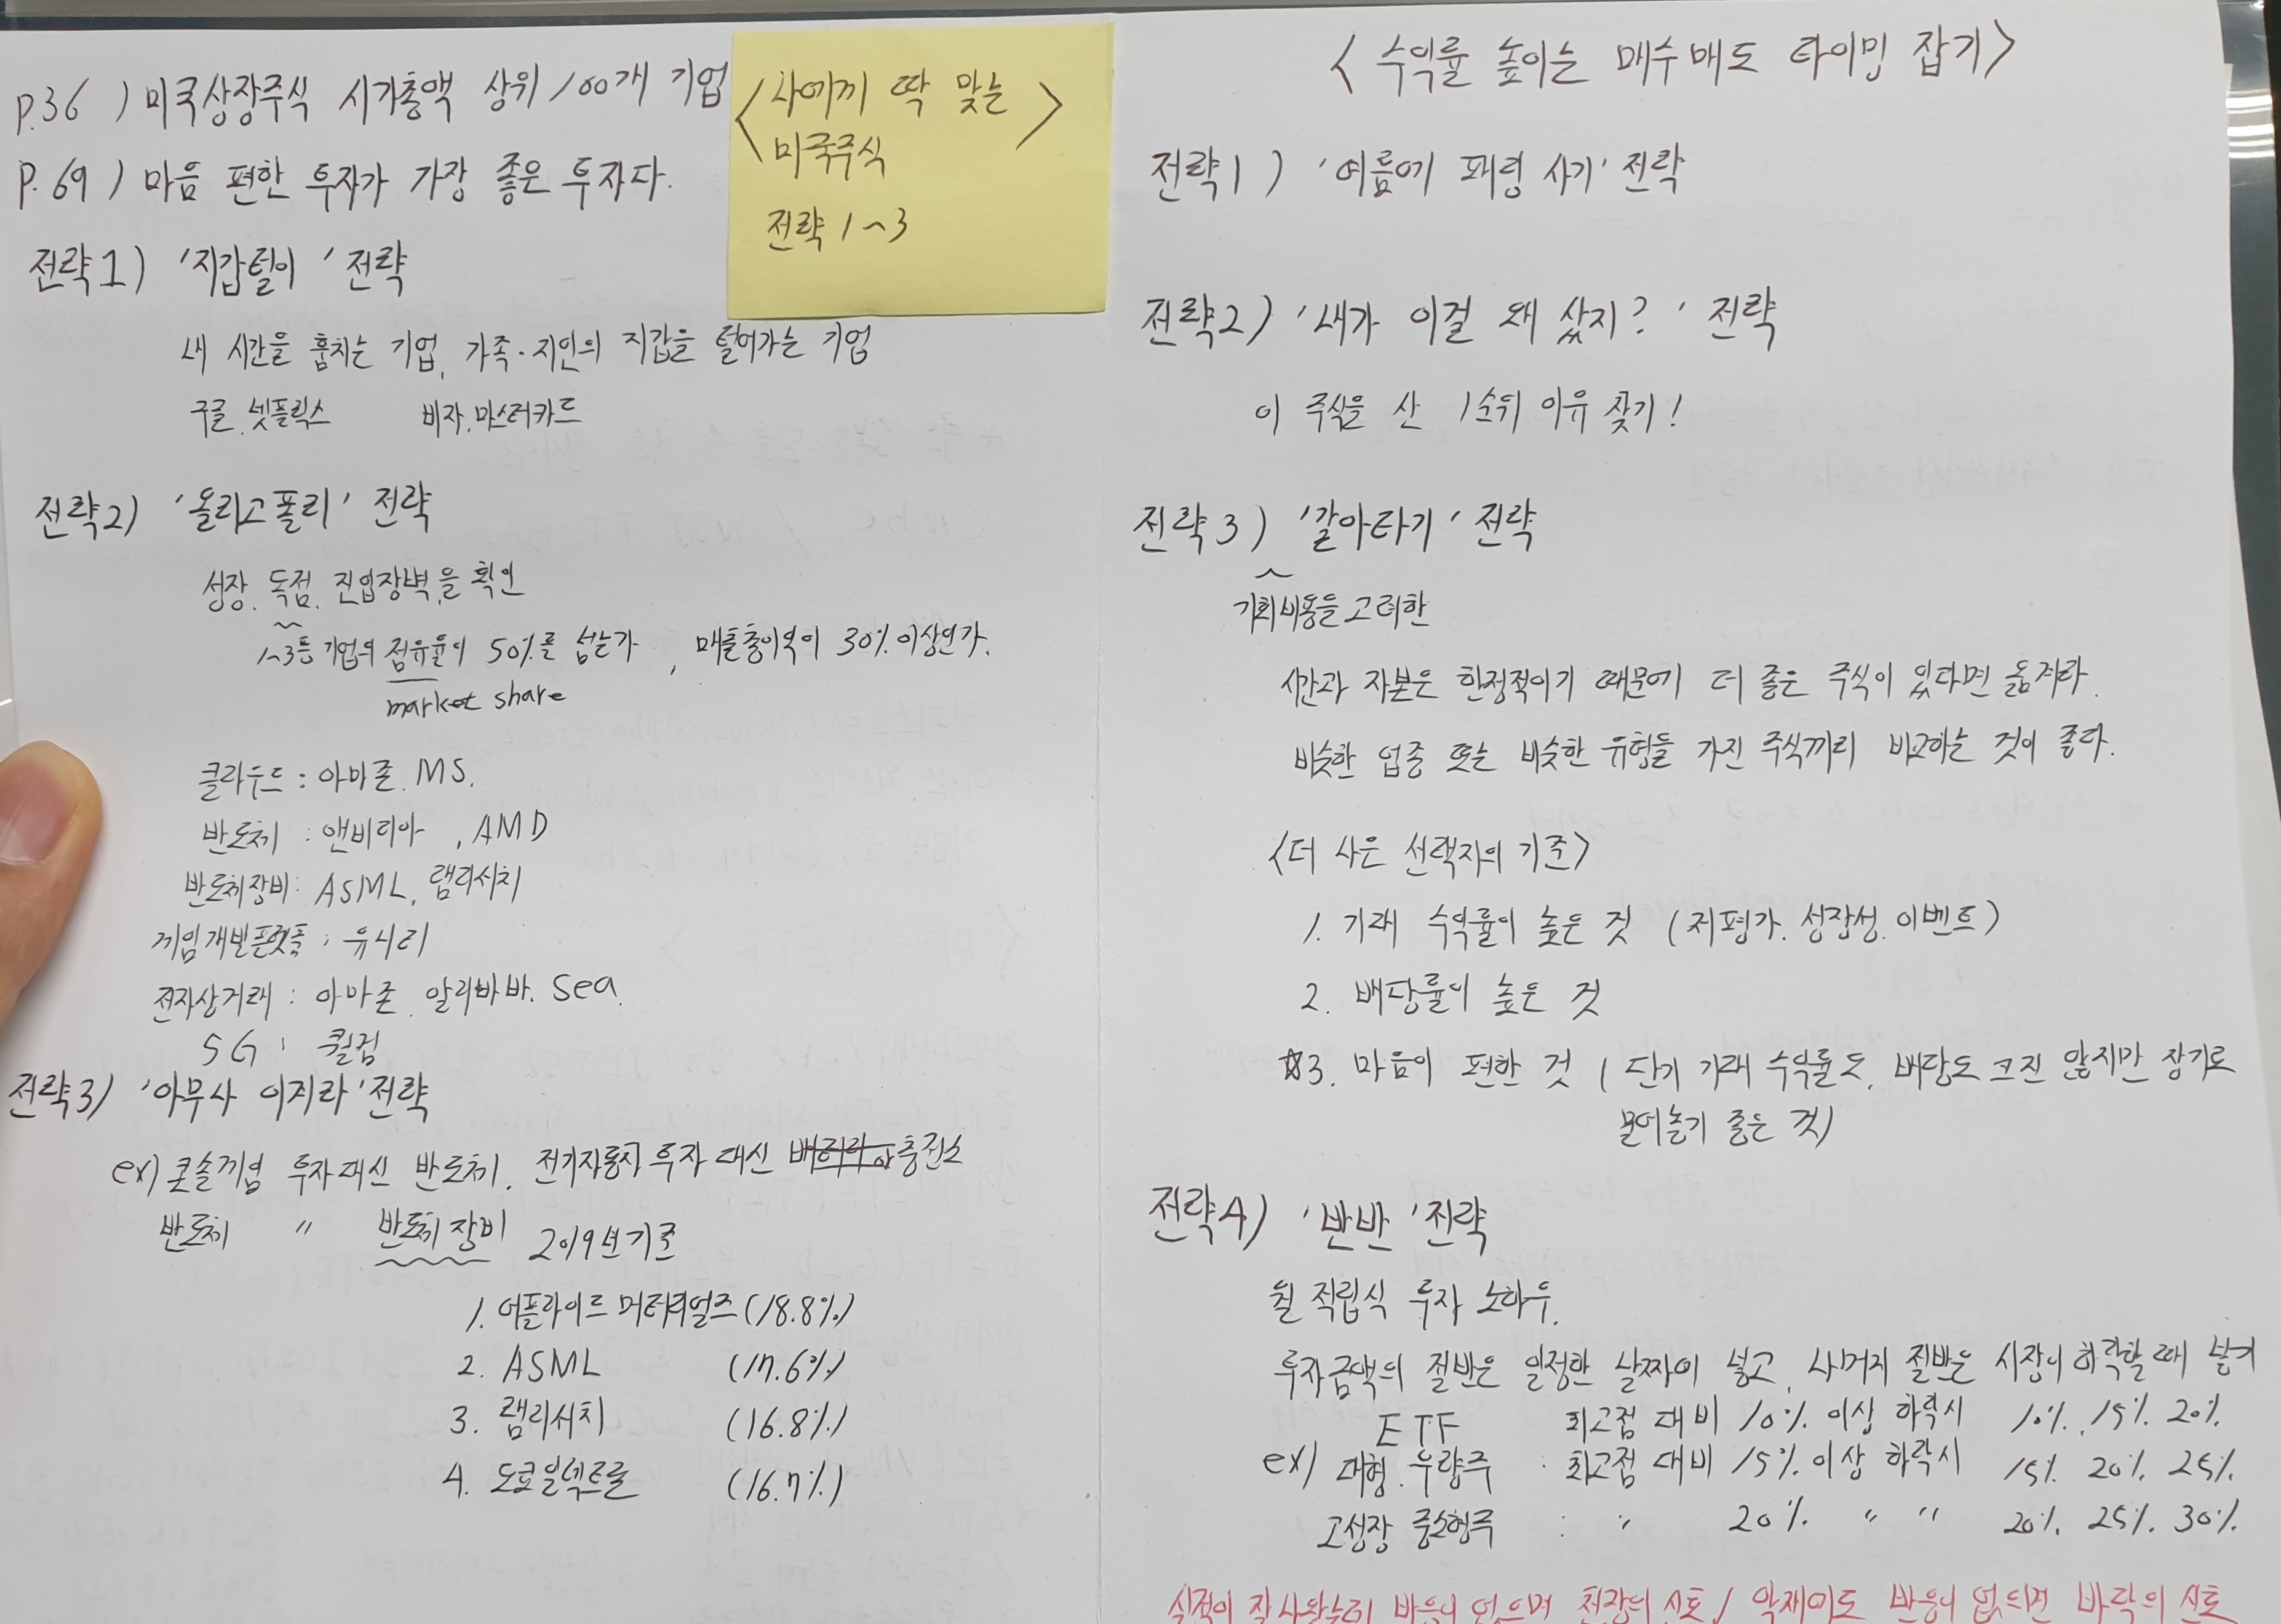 P.36 ) 미국상장주식 시가총액 상위 100개 기업
P.69 ) 마음 편한 투자가 가장 좋은 투자다.
<나에게 딱 맞는
미국주식>
전략 1~3
전략1) '지갑털이' 전략
내 시간을 훔치는 기업, 가족·지인의 지갑을 털어가는 기업
구글, 넷플릭스 비자, 마스터카드
전략2) '올리고폴리' 전략
성장, 독점, 진입장벽을 확인
1~3등 기업의 점유율이 50%를 넘는가, 매출총이익이 30% 이상인가.
market share
클라우드 : 아마존, MS.
반도체 : 앤비디아, AMD
반도체장비 : ASML, 램리서치
게임개발플랫폼 : 유니티
전자상거래 : 아마존, 알리바바, Sea.
5G : 퀄컴
전략3) '아무나 이겨라' 전략
ex) 콘솔게임 투자 대신 반도체, 전기자동차 투자 대신 충전소
반도체 〃 반도체 장비 2019년 기준
1. 어플라이드 머티리얼즈 (18.8%)
2. ASML (17.6%)
3. 램리서치 (16.8%)
4. 도쿄일렉트론 (16.7%)
<수익률 높이는 매수매도 타이밍 잡기>
전략1) '여름에 패딩 사기' 전략
전략2) '내가 이걸 왜 샀지?' 전략
이 주식을 산 1순위 이유 찾기!
전략3) '갈아타기' 전략
기회비용을 고려한
시간과 자본은 한정적이기 때문에 더 좋은 주식이 있다면 옮겨라.
비슷한 업종 또는 비슷한 유형을 가진 주식끼리 비교하는 것이 좋다.
<더 나은 선택지의 기준>
1. 기대 수익률이 높은 것 (저평가, 성장성, 이벤트)
2. 배당률이 높은 것
☆3. 마음이 편한 것 (단기 기대 수익률도, 배당도 크진 않지만 장기로
묻어놓기 좋은 것)
전략4) '반반' 전략
월 적립식 투자 노하우.
투자금액의 절반은 일정한 날짜에 넣고, 나머지 절반은 시장이 하락할 때 넣기
ETF 최고점 대비 10% 이상 하락시 10%, 15%, 20%
ex) 대형 우량주 : 최고점 대비 15% 이상 하락시 15% 20% 25%
고성장 중소형주 : 〃 20% 〃 〃 20%, 25%, 30%
실적이 잘 나왔는데 반응이 없으면 천장의 신호 / 악재에도 반응이 없으면 바닥의 신호